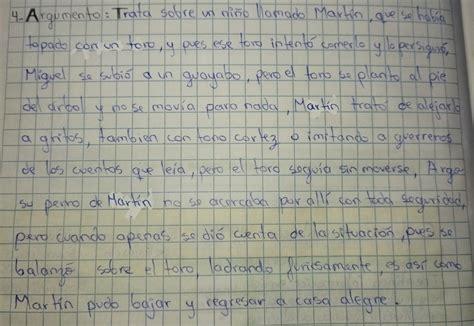 4-Argumento: Trata sobre un niño llamado Martín, que se había
topado con un toro, y pues ese toro intentó comerlo y lo persiguió,
Miguel se subió a un guayabo, pero el toro se planto al pie
del árbol y no se movía para nada, Martín trató de alejarlo
a gritos, tambien con tono cortez o imitando a guerreros
de los cuentos que leía, pero el toro seguía sin moverse, Argo
su perro de Martín no se acercaba por allí con toda seguridad,
pero cuando apenas se dió cuenta de la situación, pues se
balanzó sobre el toro, ladrando furiosamente, es así como
Martín pudo bajar y regresar a casa alegre.